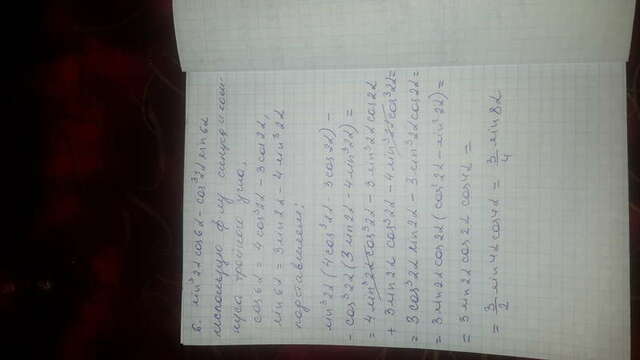 6. sin³2α cos6α - cos³2α sin6α
использую ф-лу синуса и коси-
нуса тройного угла.
cos6α = 4cos³2α - 3cos2α,
sin6α = 3sin2α - 4sin³2α
подставляем:
sin³2α(4cos³2α 3cos2α) -
- cos³2α(3sin2α - 4sin³2α) =
= 4sin³2αcos³2α - 3sin³2αcos2α
+ 3sin2α cos³2α - 4sin³2αcos³2α =
= 3cos³2α sin2α - 3sin³2αcos2α =
= 3sin2αcos2α(cos²2α - sin²2α) =
= 3sin2αcos2α cos4α =
= 3/2 sin4αcos4α = 3/4 sin8α